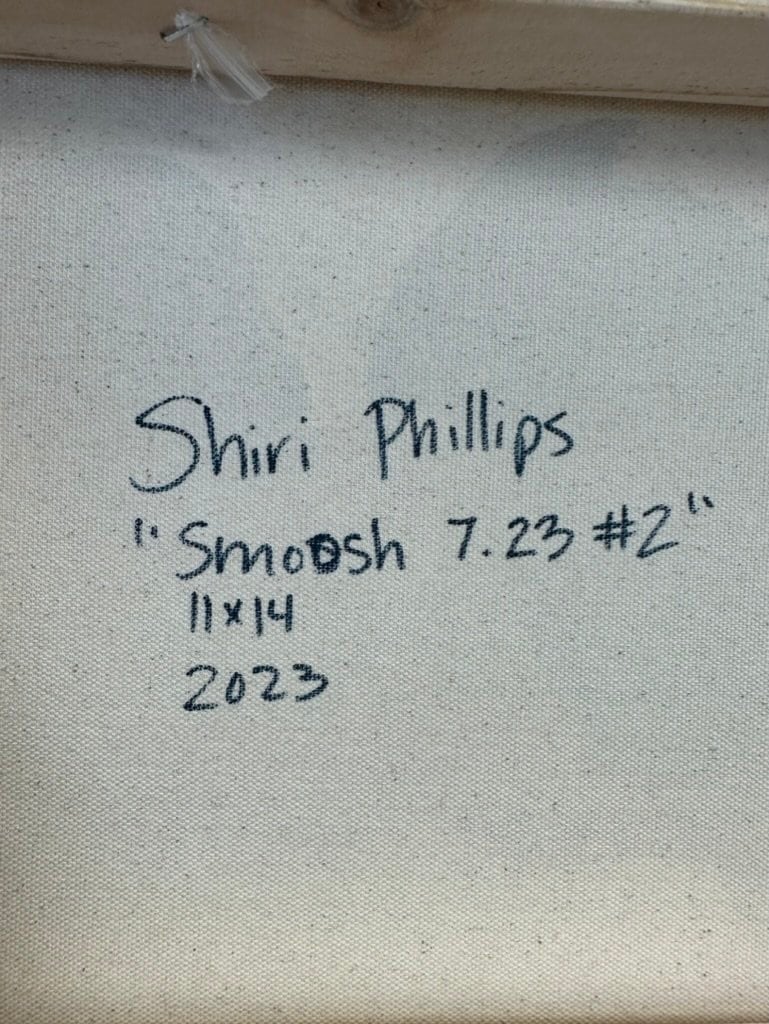 Shiri Phillips
"Smoosh 7.23 #2"
11x14
2023